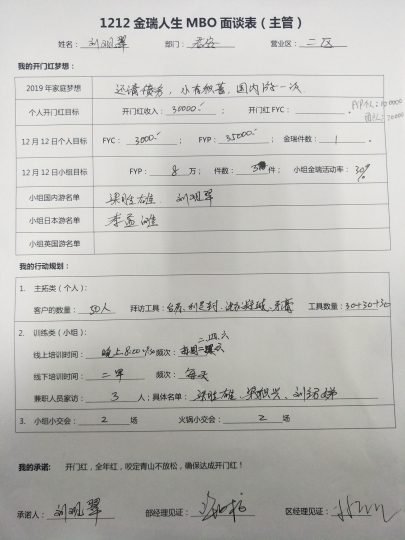 1212 金瑞人生 MBO 面谈表（主管）
姓名： 刘观翠 部门： 营业区： 二区
我的开门红梦想：
2019 年家庭梦想 还清债务，小有积蓄，国内游一次
个人开门红目标 开门红收入： 30000.- ； 开门红 FYC： 。
12 月 12 日个人目标 FYC： 3000.- ； FYP： 35000.- ； 金瑞件数： 1 。
12 月 12 日小组目标 FYP： 8 万； 件数： 3 件； 小组金瑞活动率： 30%
小组国内游名单 梁胜雄 刘观翠
小组日本游名单
小组英国游名单
我的行动规划：
1. 主拓类（个人）：
客户的数量： 50人 拜访工具： 台历、利是封、 工具数量：30+30+30
2. 训练类（小组）：
线上培训时间： 晚上8:00-9:30 频次： 二、四、六
线下培训时间： 二早 频次： 每天
兼职人员家访： 3 人；具体名单： 梁胜雄、
3. 小组小交会： 2 场 火锅小交会： 2 场
我的承诺： 开门红，全年红，咬定青山不放松，确保达成开门红！
承诺人： 刘观翠 部经理见证： 区经理见证：